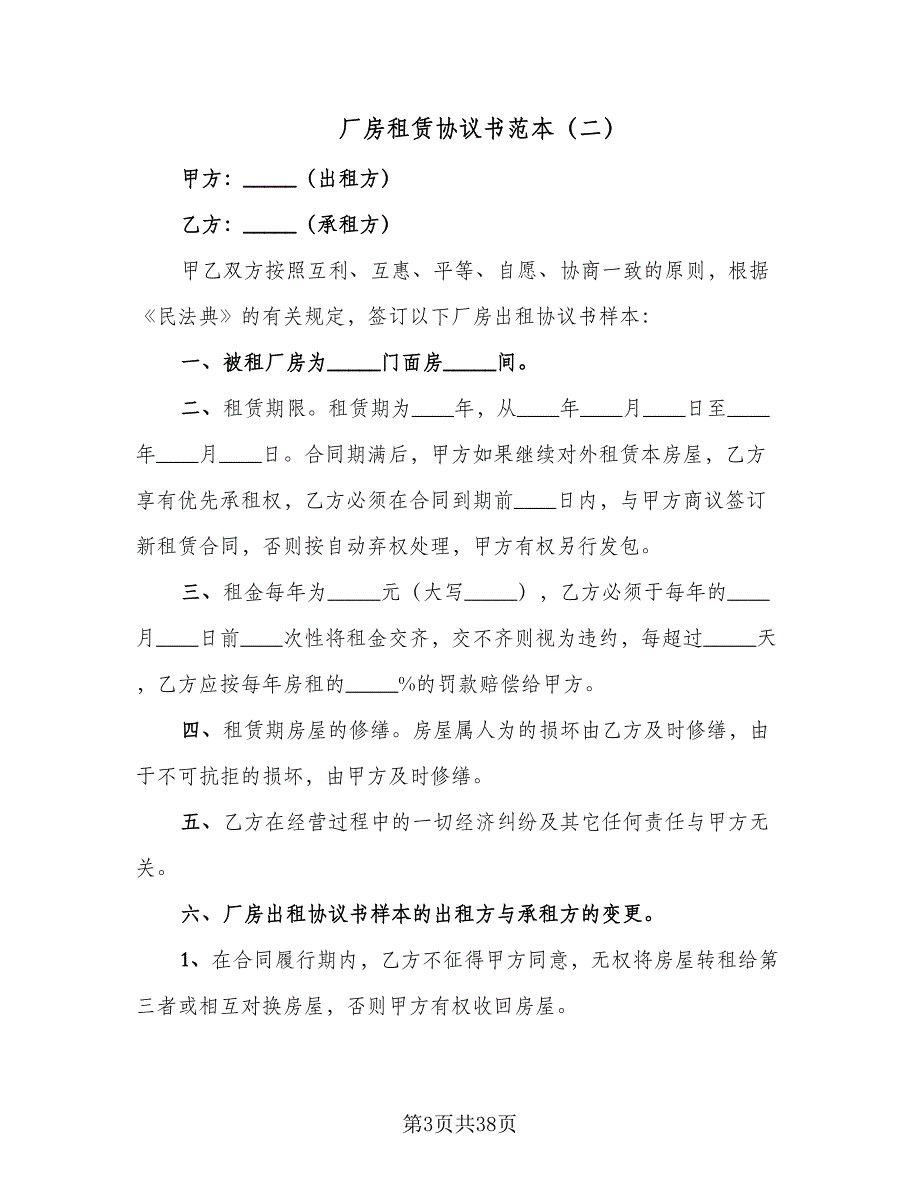 厂房租赁协议书范本（二）
甲方：_____（出租方）
乙方：_____（承租方）
甲乙双方按照互利、互惠、平等、自愿、协商一致的原则，根据
《民法典》的有关规定，签订以下厂房出租协议书样本：
一、被租厂房为_____门面房_____间。
二、租赁期限。租赁期为____年，从____年____月____日至____
年____月____日。合同期满后，甲方如果继续对外租赁本房屋，乙方
享有优先承租权，乙方必须在合同到期前____日内，与甲方商议签订
新租赁合同，否则按自动弃权处理，甲方有权另行发包。
三、租金每年为_____元（大写_____），乙方必须于每年的____
月____日前____次性将租金交齐，交不齐则视为违约，每超过_____天
，乙方应按每年房租的_____%的罚款赔偿给甲方。
四、租赁期房屋的修缮。房屋属人为的损坏由乙方及时修缮，由
于不可抗拒的损坏，由甲方及时修缮。
五、乙方在经营过程中的一切经济纠纷及其它任何责任与甲方无
关。
六、厂房出租协议书样本的出租方与承租方的变更。
1、在合同履行期内，乙方不征得甲方同意，无权将房屋转租给第
三者或相互对换房屋，否则甲方有权收回房屋。
第3页共38页